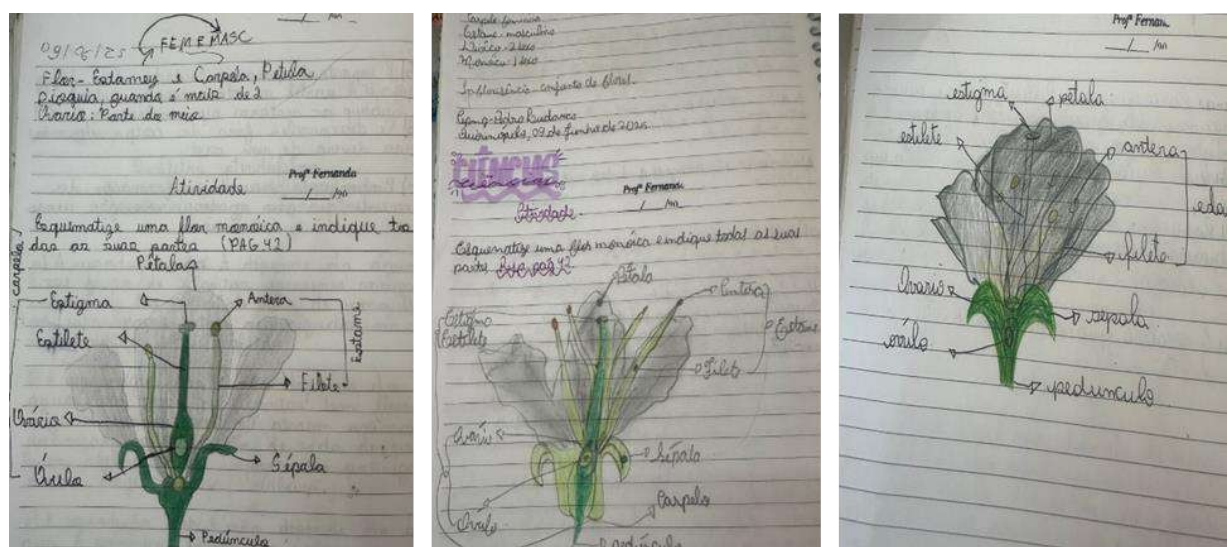 09/6/25
FEM E MASC
Flor - Estames e Carpela, Petula
Dioquia, quando é mais de 2
Ovário: Parte do meio
Profª Fernanda
Atividade
Esquematize uma flor monóica e indique to
das as suas partes (PAG 42)
Pétala
Carpela
Estigma
Antera
Estilete
Estame
Filete
Ovário
Óvulo
Sépala
Pedúnculo
Carpelo feminino
Estame - masculino
Dióico - 2 sexo
Monóico - 1 sexo
Inflorescência - conjunto de floral
Quirinópolis, 09 de Junho de 2025
CIÊNCIAS
Profª Fernanda
Atividade
Esquematize uma flor monóica e indique todas as suas
partes.
Pétala
Antera
Estigma
Estilete
Estame
Filete
Ovário
Sépala
Carpelo
Óvulo
Pedúnculo
Profª Fernan
estigma
pétala
estilete
antera
filete
Ovario
sépala
óvulo
pedunculo